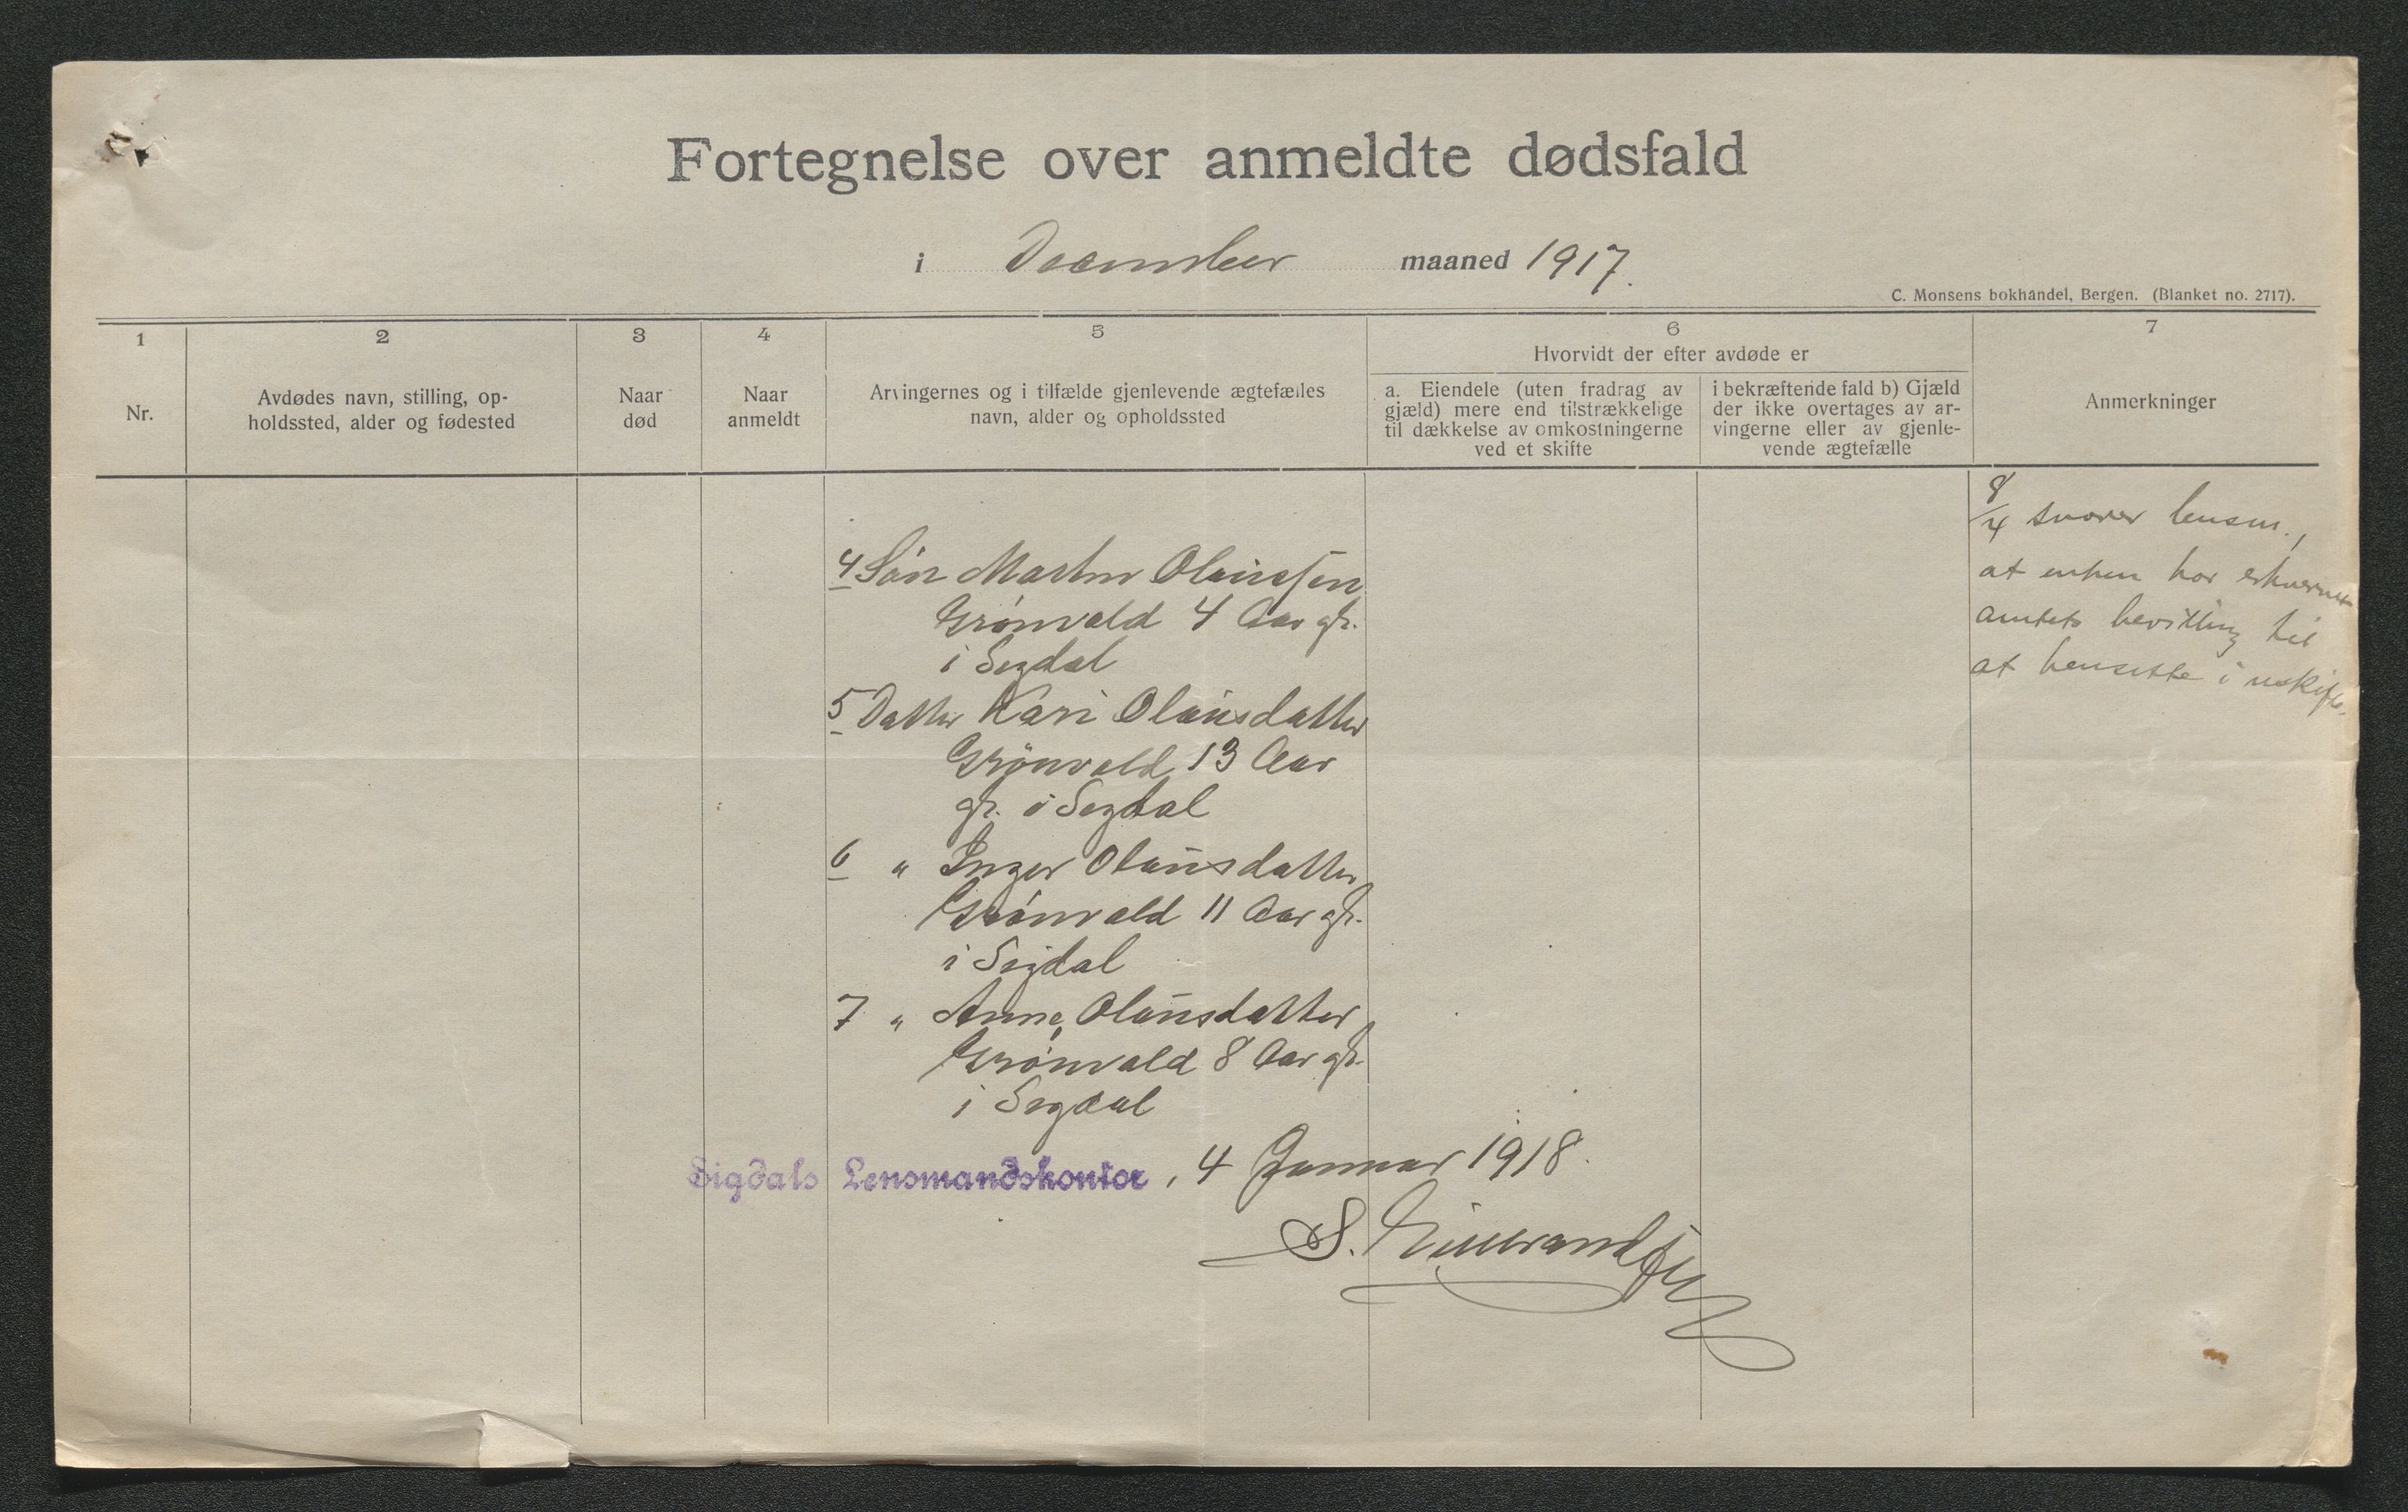 Fortegnelse over anmeldte dødsfald
i December maaned 1917.
C. Monsens bokhandel, Bergen. (Blanket no. 2717).
1 2 3 4 5 6 7
Nr.
Avdødes navn, stilling, op-
holdssted, alder og fødested
Naar
død
Naar
anmeldt
Arvingernes og i tilfælde gjenlevende ægtefælles
navn, alder og opholdssted
Hvorvidt der efter avdøde er
a. Eiendele (uten fradrag av
gjæld) mere end tilstrækkelige
til dækkelse av omkostningerne
ved et skifte
i bekræftende fald b) Gjæld
der ikke overtages av ar-
vingerne eller av gjenle-
vende ægtefælle
Anmerkninger
4 Søn Martin Olaussen
Grønvold 4 Aar gl.
i Sigdal
5 Datter Kari Olausdatter
Grønvold 13 Aar
gl. i Sigdal
6 " Inger Olausdatter
Grønvold 11 Aar gl.
i Sigdal
7 " Anne Olausdatter
Grønvold 8 Aar gl.
i Sigdal
8/4 svarer lensm.,
at enken har erhvervet
amtets bevilling til
at hensitte i uskifte.
Sigdals Lensmandskontor, 4 Januar 1918.
S.